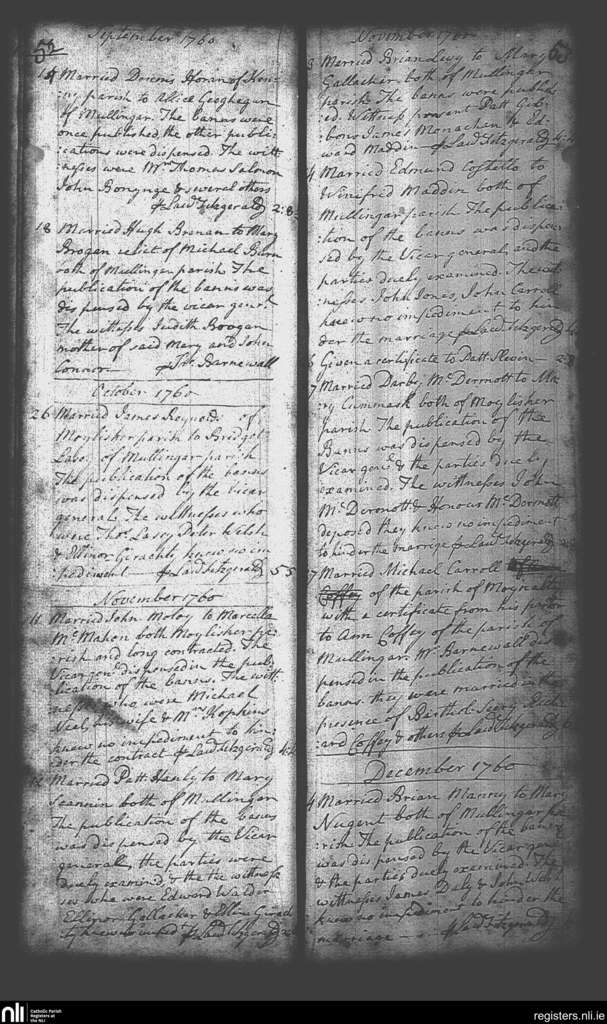 52
September 1760
Married Horan of
:ny parish to Allice Geoghegan
of Mullingar. The banns were
once published, the other publi:
:cations were dispensed. The witt:
:nesses were Mr. Thomas Salmon
John Bonynge & several others
Law: Fitzgerald 2:8
18 Married Hugh Brenan to Mary
Brogan relict of Michael
both of Mullingar parish. The
publication of the banns was
dispensed by the vicar genrl.
The wittnesses Judeth Brogan
mother of said Mary and John
Connor Barnewall
October 1760
26 Married James Reynolds of
Moylisker parish to Bridget
of Mullingar parish
The publication of the banns
was dispensed by the vicar
general. The wittnesses who
were Thos. Lacey Peter Walsh
& Ellinor Geraghty knew no im
pediment Law: Fitzgerald 5 5
November 1760
11 Married John Moloy to Marcella
Mc.Mahon both Moylisker pa:
rish and long contracted. The
Vicar gen dispensed in the pub
lication of the banns. The witt
nesses who were Michael
Neal, his wife & Mrs Hopkins
knew no impediment to hin:
der the contract Law: Fitzgerald 4:
12 Married Patt: Hanly to Mary
both of Mullingar
The publication of the banns
was dispensed by the Vicar
general, the parties were
duely examined, & the wittness
ses who were Edward Waldon
Ellinor Gallacher & Ellinor
knew no Law: Fitzgerald
November 1760
53
3 Married Brian Levy to Mary
Gallacher both of Mullingar
parish. The banns were publish
:ed. Wittness present Patt Gib
:bons James Monachan & Ed
ward Maddin Law: Fitzgerald
4 Married Edmund Costello to
Winifred Maddin both of
Mullingar parish. The publica:
:tion of the banns was dispen
sed by the Vicar general, and the
parties duely examined. The wit
:nesses John Jones, John Carroll
knew no impediment to hin
der the marriage Law: Fitzgerald
6 Given a certificate to Patt Slevin 2:8
7 Married Darby Mc.Dermott to Ma
ry Cummask both of Moylisker
parish. The publication of the
Banns was dispensed by the
Vicar genl. & the parties duely
examined. The wittnesses John
Mc.Dermott & Honour Mc.Dermott
deposed they knew no impediment
to hinder the marrige Law: Fitzgerald
17 Married Michael Carroll
Coffey of the parish of
with a certificate from his pastor
to Ann Coffey of the parish of
Mullingar. Mr. Barnewall dis
pensed in the publication of the
banns. they were married in the
presence of Barthol: Rich
:ard Coffey & others Law: Fitzgerald
December 1760
4 Married Brian to Mary
Nugent both of Mullingar pa
:rish. The publication of the banns
was dispensed by the Vicar gen
& the parties duely examined. The
wittnesses James Daly & John Walsh
knew no impediment to hinder the
marriage Law: Fitzgerald
nli
Catholic Parish
Registers at
the NLI
registers.nli.ie